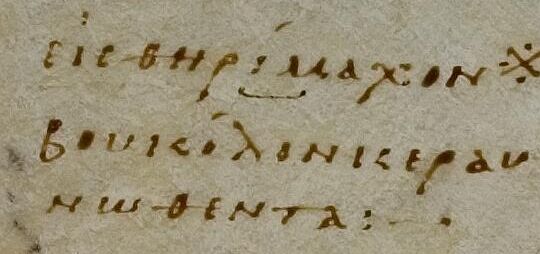 εἰς θηρίμαχον ※
βουκόλον κεραυ
νωθεντα :—